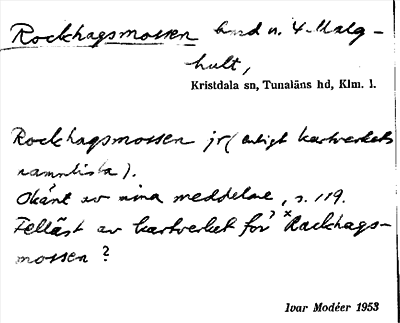 Rockhagsmossen hmd u. 4-Malg-
hult,
Kristdala sn, Tunaläns hd, Klm. l.
Rockhagsmossen jr (enligt kartverkets
namnlista).
Okänt av mina meddelare, s. 119.
Felläst av kartverket för? ˣRackhags-
mossen?
Ivar Modéer 1953